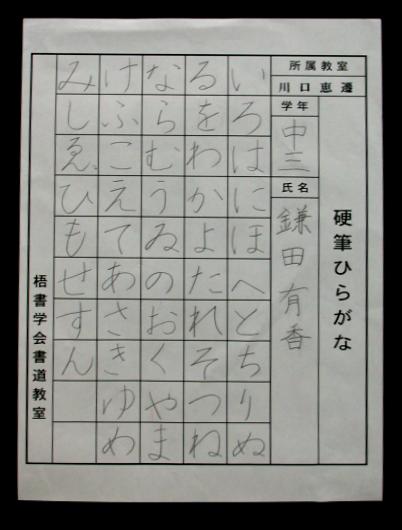 硬筆ひらがな
所属教室
川口恵遷
学年
中三
氏名
鎌田有香
いろはにほへとちりぬ
るをわかよたれそつね
ならむうゐのおくやま
けふこえてあさきゆめ
みしゑひもせすん
梧書学会書道教室